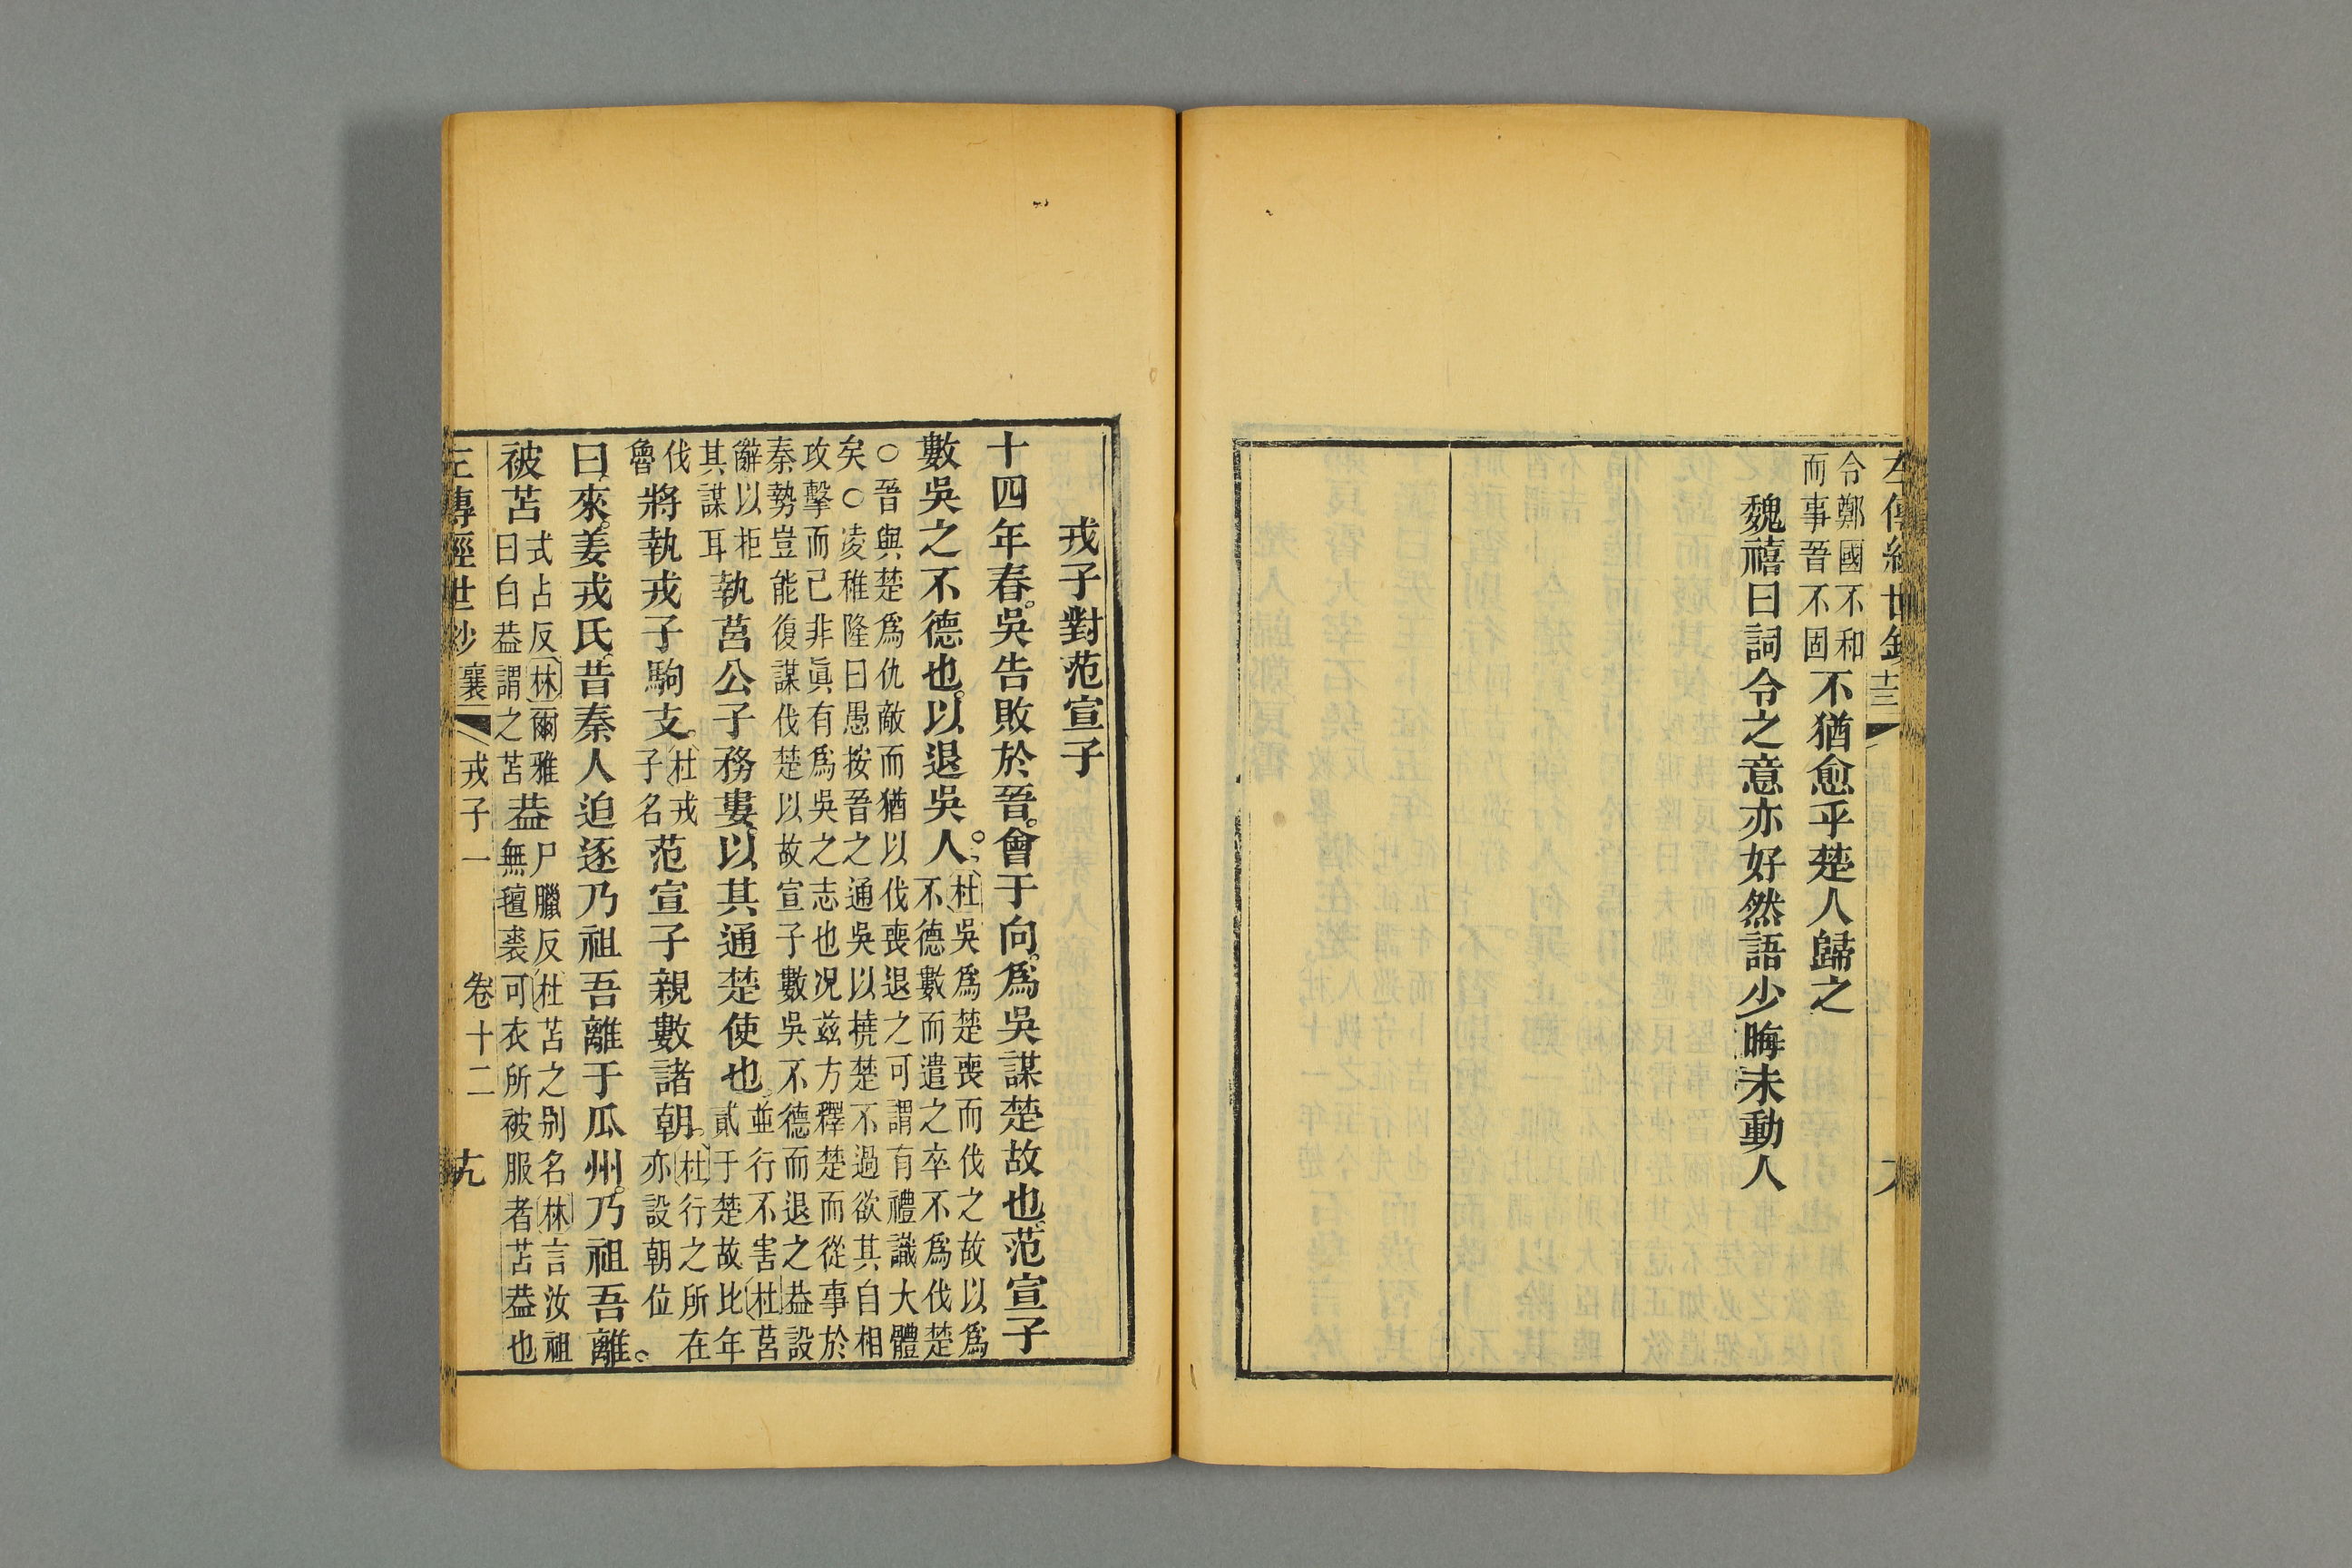 令鄭國不和
而事晉不固
不猶愈乎楚人歸之
魏禧曰詞令之意亦好然語少晦未動人
戎子對范宣子
十四年春吳告敗於晉會于向爲吳謀楚故也范宣子
數吳之不德也以退吳人
杜吳爲楚喪而伐之故以爲
不德數而遣之卒不爲伐楚
○晉與楚爲仇敵而猶以伐喪退之可謂有禮識大體
矣○凌稚隆曰愚按晉之通吳以撓楚不過欲其自相
攻擊而已非眞有爲吳之志也况兹方釋楚而從事於
秦勢豈能復謀伐楚以故宣子數吳不德而退之葢設
辭以柜
其謀耳
執莒公子務婁以其通楚使也
並行不害杜莒
貳于楚故比年
伐
魯
將執戎子駒支
杜戎
子名
范宣子親數諸朝
杜行之所在
亦設朝位
曰來姜戎氏昔秦人迫逐乃祖吾離于瓜州乃祖吾離
被苫
式占反林爾雅
曰白葢謂之苫
葢
尸臘反杜苫之别名林言汝祖
無氊裘可衣所被服者苫葢也
左傳經世鈔
襄
戎子一
卷十二